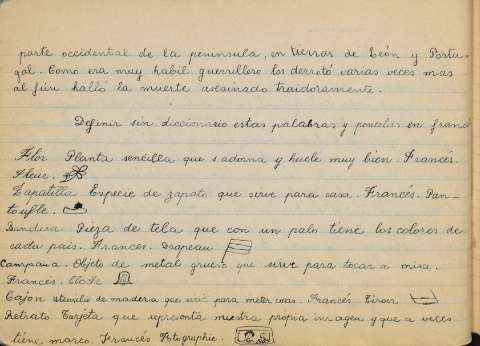 parte occidental de la peninsula, en tierras de León y Portu-
gal. Como era muy habil guerrillero los derrotó varias veces mas
al fin halló la muerte asesinado traidoramente.
Definir sin diccionario estas palabras y ponerlas en francé
Flor Planta sencilla que adorna y huele muy bien. Francés.
Fleur.
Zapatilla Especie de zapato que sirve para casa. Francés. Pan-
toufle.
Bandera Pieza de tela que con un palo tiene los colores de
cada pais. Francés. Drapeau
Campana. Objeto de metal grueso que sirve para tocar a misa.
Francés. Cloche
Cajon utensilio de madera que sirve para meter cosas. Francés Tiroir
Retrato Tarjeta que representa nuestra propia imagen y que a veces
tiene marco. Francés Potographie.